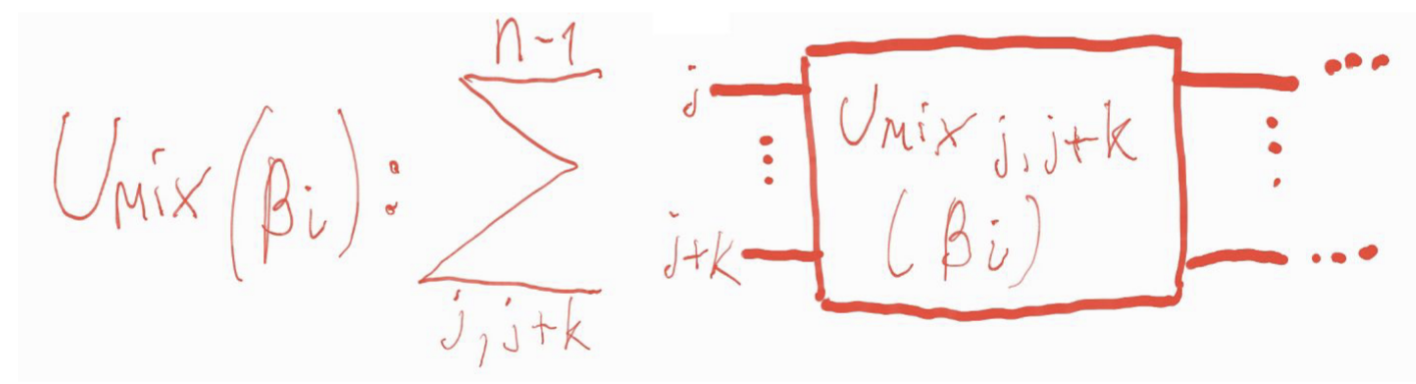 n-1
Umix(βi): ∑
j, j+k
j
⋮
j+k
Umix j, j+k
(βi)
...
⋮
...